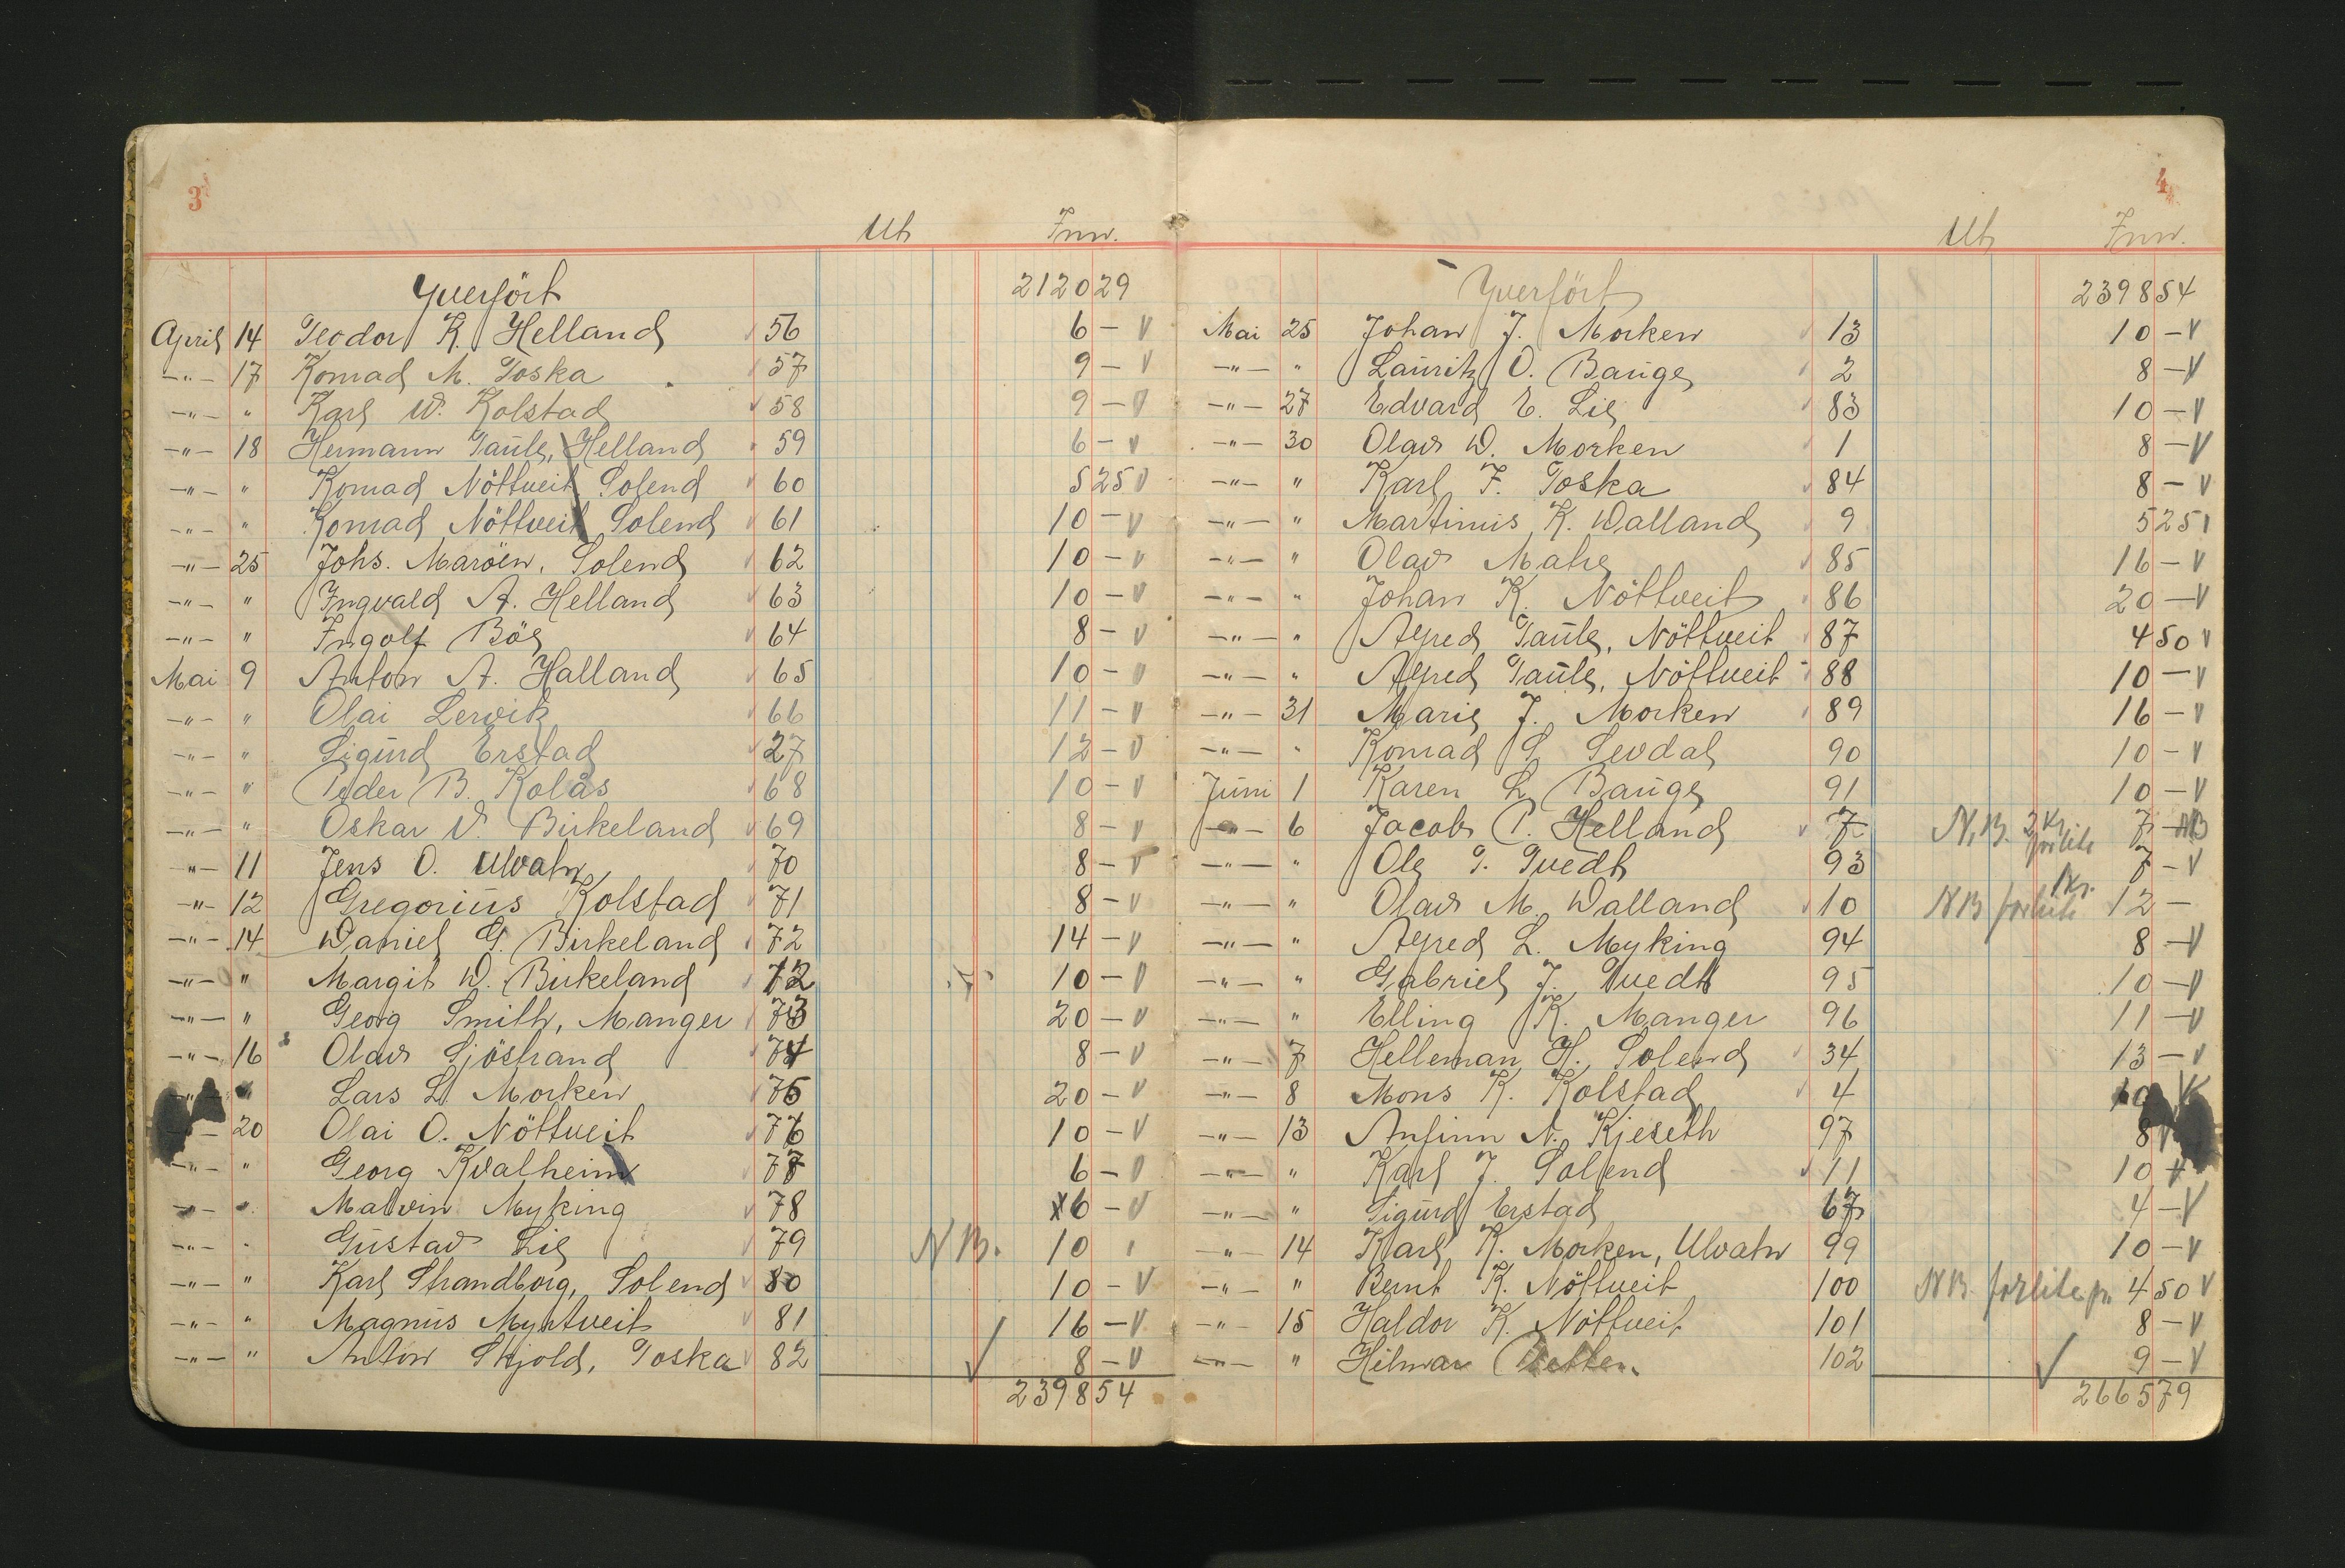 3
Ut Inn.
Yverfört 212029
April 14 Teodor K. Helland 56 6 -
-"- 17 Konrad M. Toska 57 9 -
-"- " Karl W. Kolstad 58 9 -
-"- 18 Hermann Taule, Helland 59 6 -
-"- " Konrad Nöttveit Solend 60 5 25
-"- " Konrad Nöttveit Solend 61 10 -
-"- 25 Johs. Maröen, Solend 62 10 -
-"- " Ingvald A. Helland 63 10 -
-"- " Ingolf Böe 64 8 -
Mai 9 Anton A. Halland 65 10 -
-"- " Olai Lervik 66 11 -
-"- " Sigurd Erstad 27 12 -
-"- " Peder B. Kolås 68 10 -
-"- " Oskar V. Birkeland 69 8 -
-"- 11 Jens O. Ulvatn 70 8 -
-"- 12 Gregorius Kolstad 71 8 -
-"- 14 Daniel G. Birkeland 72 14 -
-"- " Margit D. Birkeland 72 10 -
-"- " Georg Smith, Manger 73 20 -
-"- 16 Olav Sjöstrand 74 8 -
-"- " Lars L. Morken 75 20 -
- 20 Olai O. Nöttveit 76 10 -
-"- " Georg Kvalheim 77 6 -
-"- " Malvin Myking 78 6 -
-"- " Gustav Lie 79 NB. 10
-"- " Karl Strandborg, Solend 80 10 -
-"- " Magnus Myrtveit 81 16 -
-"- " Anton Skjold, Toska 82 8 -
239854
4
Ut Inn.
Yverfört 239854
Mai 25 Johan J. Morken 13 10 -
-"- " Lauritz O. Bauge 2 8 -
-"- 27 Edvard E. Lie 83 10 -
-"- 30 Olav D. Morken 1 8 -
-"- " Karl F. Toska 84 8 -
-"- " Martinius K. Walland 9 5 25
-"- " Olav Mahe 85 16 -
-"- " Johan K. Nöttveit 86 20 -
-"- " Alfred Taule, Nöttveit 87 4 50
-"- " Alfred Taule, Nöttveit 88 10 -
-"- 31 Marie J. Morken 89 16 -
-"- " Konrad S. Sevdal 90 10 -
Juni 1 Karen L. Bauge 91 10 -
-"- 6 Jacob P. Helland 7 N.B. 2 kr. forlite 7 - NB
-"- " Ole T. Tvedt 93 7 -
-"- " Olav M. Walland 10 NB forlite 1 kr. 12 -
-"- " Alfred L. Myking 94 8 -
-"- " Gabriel J. Tvedt 95 10 -
-"- " Elling K. Manger 96 11 -
-"- 7 Helleman H. Solend 34 13 -
-"- 8 Mons K. Kolstad 4 10
-"- 13 Anfinn N. Kjeseth 97 8
-"- " Karl J. Solend 11 10
-"- " Sigurd Erstad 67 4 -
-"- 14 Karl K. Morken, Ulvatn 99 10 -
-"- " Bernt K. Nöttveit 100 NB forlite 4 50
-"- 15 Haldor K. Nöttveit 101 8 -
-"- " Hilmar 102 9 -
266579